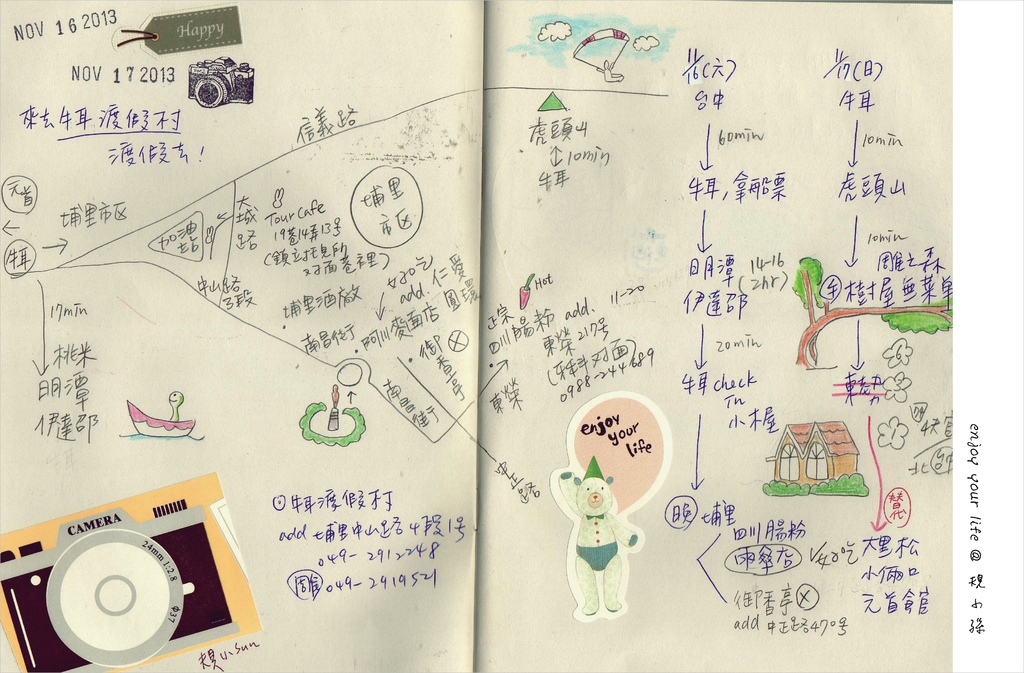 NOV 16 2013
Happy
NOV 17 2013
來去牛耳渡假村
渡假去!
信義路
元首
埔里市区
牛耳
加油站
大城路
Tour Cafe
19巷14弄13号
(鎮立托兒所
对面巷裡)
埔里市区
中山路3段
埔里酒廠
好吃
add. 仁愛
圓環
南昌街
阿川麥面店
御香亭
南昌街
17min
桃米
日月潭
伊達邵
①牛耳渡假村
add 埔里中山路4段1号
049-2912248
049-2919521
CAMERA
24mm 1:2.8
Φ37
虎頭山
10min
牛耳
Hot
11-20
正宗
四川腸粉 add.
東榮217号
0988-244689
東榮
中正路
enjoy
your
life
11/16(六)
台中
60min
牛耳,拿船票
日月潭
伊達邵
14-16
(2hr)
20min
牛耳 check
in
小木屋
晚 埔里
四川腸粉
雨傘店 好吃
御香亭
add 中正路470号
11/17(日)
牛耳
10min
虎頭山
10min
雕之森
樹屋無菜單
替代
大里松
小倆口
元首館
enjoy your life @